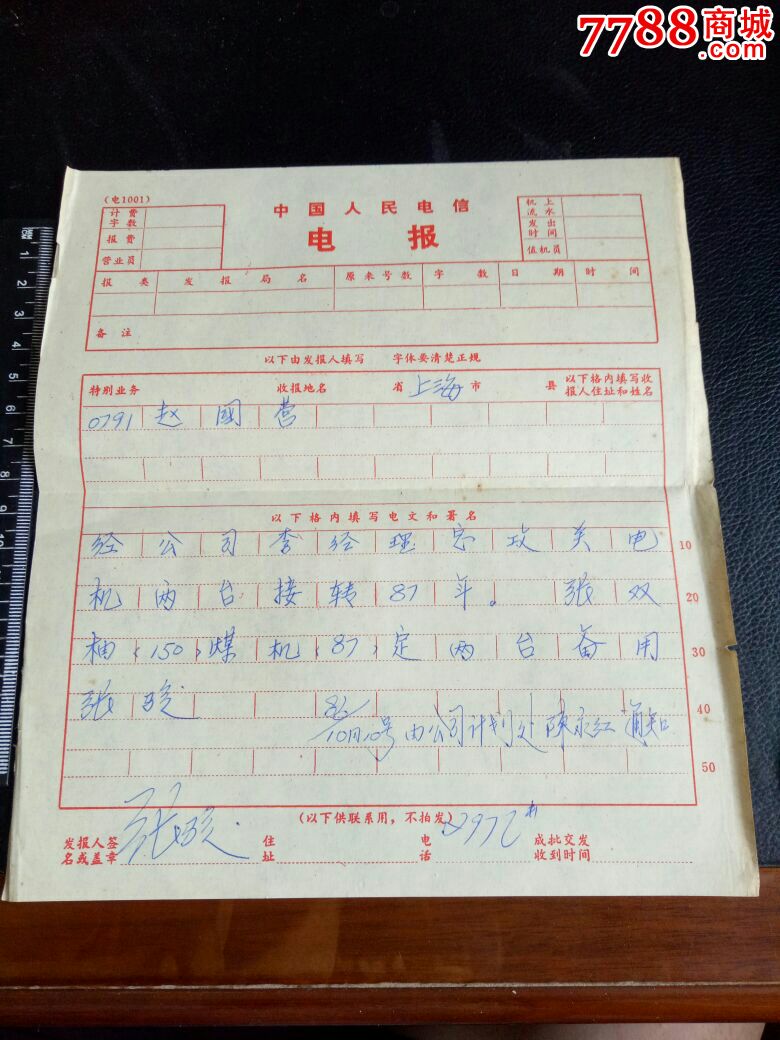 7788商城
.com
(电1001)
计费字数
报费
营业员
中国人民电信
电报
机上流水
发出时间
值机员
报类 发报局名 原来号数 字数 日期 时间
备注
以下由发报人填写 字体要清楚正规
特别业务 收报地名 省 上海 市 县 以下格内填写收报人住址和姓名
0791 赵国营
以下格内填写电文和署名
经公司李经理总攻关电 10
机两台接转87年。张双 20
柚(150)煤机(87)定两台备用 30
张骏 40
86/10月10号由公司计划处陈永红通知
50
(以下供联系用,不拍发)
发报人签名或盖章 张骏 住址 电话 成批交发收到时间